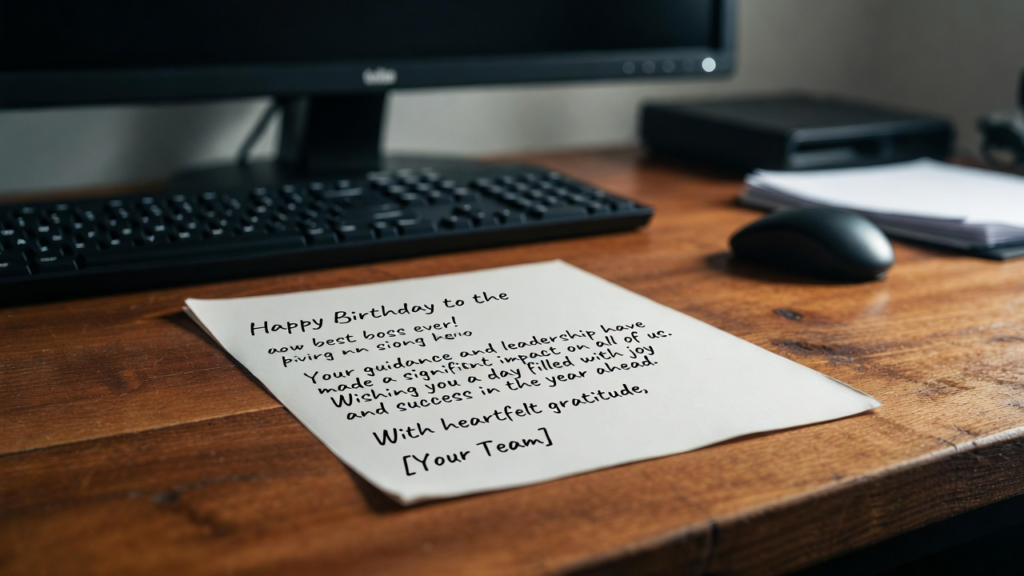 Happy Birthday to the
aow best boss ever!
Your guidance and leadership have
made a signifitnt impact on all of us.
Wishing you a day filled with joy
and success in the year ahead.
With heartfelt gratitude,
[Your Team]